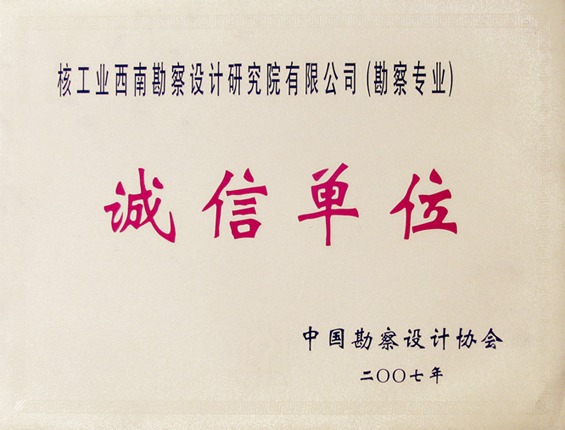 核工业西南勘察设计研究院有限公司(勘察专业)
诚信单位
中国勘察设计协会
二〇〇七年